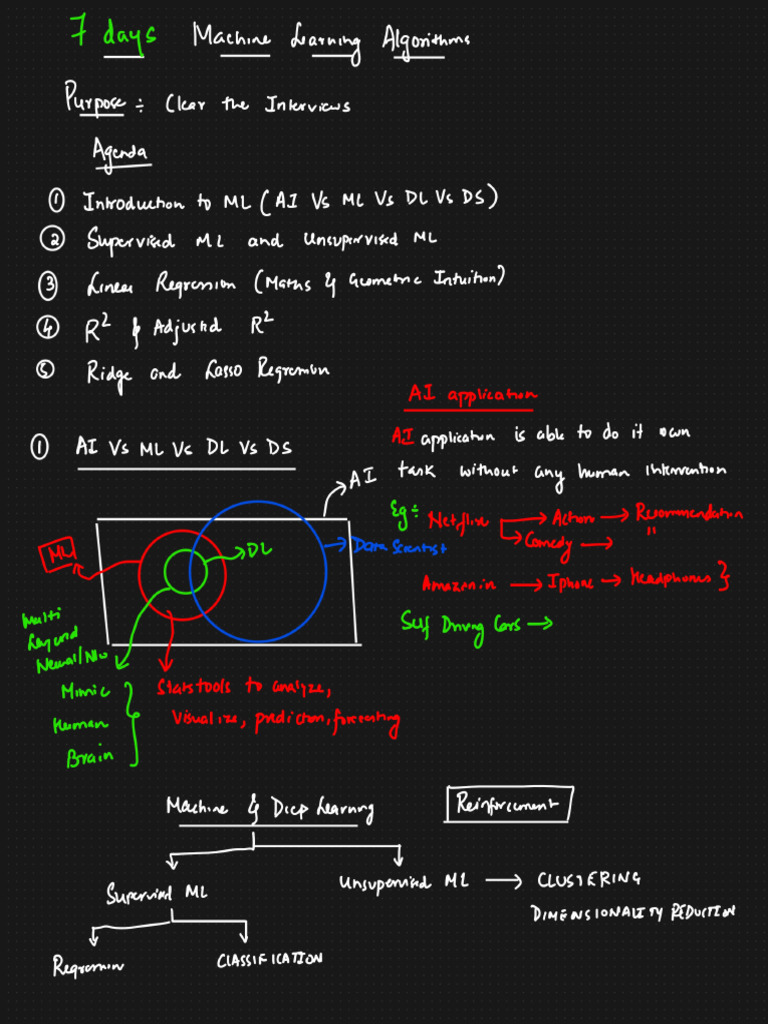 7 days Machine Learning Algorithms
Purpose ÷ Clear the Interviews
Agenda
① Introduction to ML (AI Vs ML Vs DL Vs DS)
② Supervised ML and Unsupervised ML
③ Linear Regression (Maths & Geometric Intuition)
④ R² & Adjusted R²
⑤ Ridge and Lasso Regression
① AI Vs ML Vs DL Vs DS
AI application
AI application is able to do it own
task without any human intervention
Eg ÷ Netflix → Action → Recommendation
→ Comedy → "
Amazon.in → Iphone → Headphones }
Self Driving Cars →
AI
ML
DL
Data Scientist
Multi
Layered
Neural N/w
Mimic
Human
Brain
Stats tools to analyze,
Visualize, prediction, forecasting
Machine & Deep Learning
Reinforcement
Supervised ML
Unsupervised ML → CLUSTERING
DIMENSIONALITY REDUCTION
Regression
CLASSIFICATION